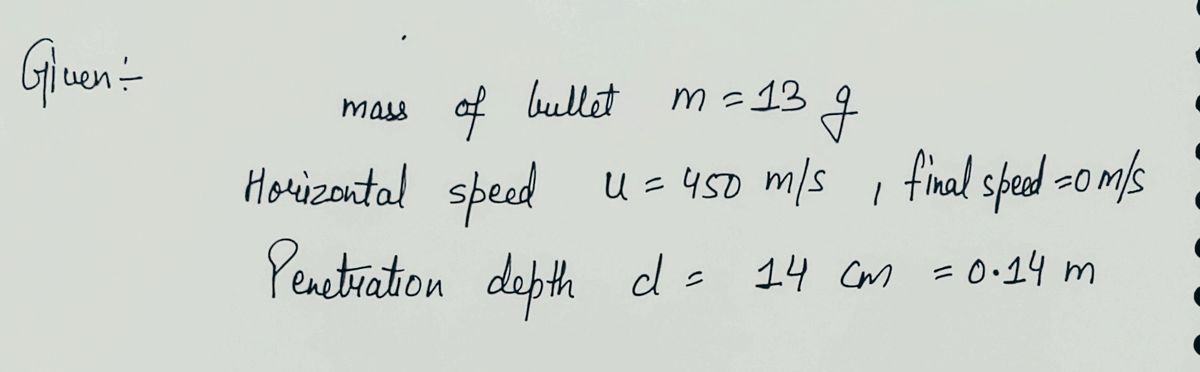 Given :-
mass of bullet m = 13 g
Horizontal speed u = 450 m/s , final speed = 0 m/s
Penetration depth d = 14 cm = 0.14 m